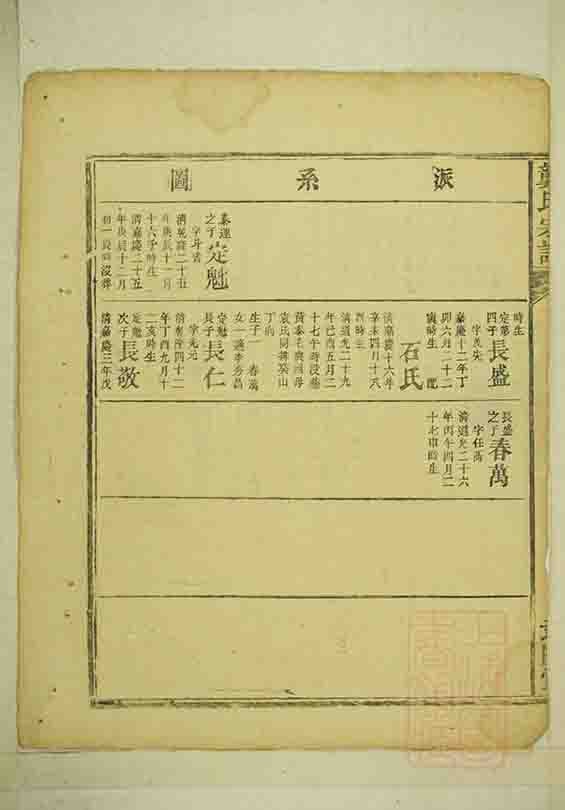 派系圖
時生
定第四子長盛
字
嘉慶十二年丁
卯六月二十二
時生 配
石氏
清嘉慶十六年
辛未四月十八
時生
清道光二十九
年己酉五月二
十七午時沒葬
袁氏同葬癸山
丁向
生子一 春萬
女一適李
定魁長子長仁
字元
清乾隆四十二
年丁酉九月十
二亥時生
定魁次子長敬
清嘉慶三年戊
之子定魁
字斗
清乾隆二十五
年庚辰十一月
十六子時生
清嘉慶二十五
年庚辰十二月
初一辰時沒葬
長盛之子春萬
字任高
清道光二十六
年丙午四月二
十七申時生